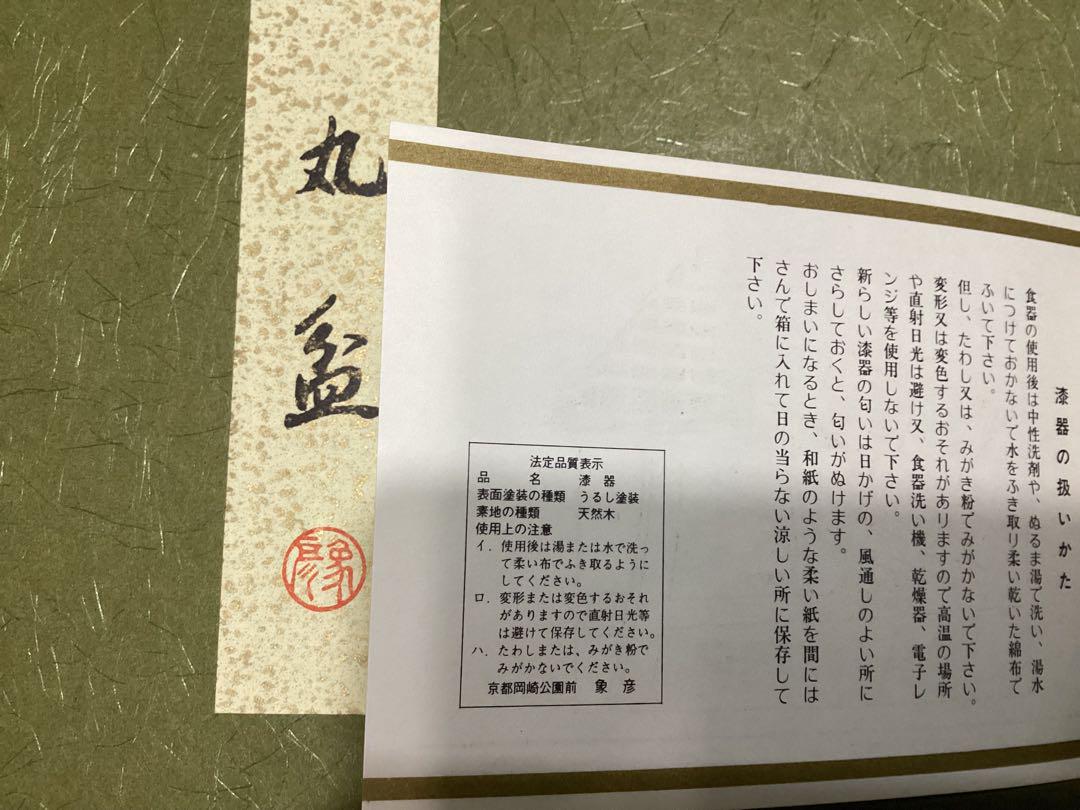 丸盆
象彦
漆器の扱いかた
食器の使用後は中性洗剤や、ぬるま湯で洗い、湯水
につけておかないで水をふき取り柔い乾いた綿布で
ふいて下さい。
但し、たわし又は、みがき粉でみがかないで下さい。
変形又は変色するおそれがありますので高温の場所
や直射日光は避け又、食器洗い機、乾燥器、電子レ
ンジ等を使用しないで下さい。
新らしい漆器の匂いは日かげの、風通しのよい所に
さらしておくと、匂いがぬけます。
おしまいになるとき、和紙のような柔い紙を間には
さんで箱に入れて日の当らない涼しい所に保存して
下さい。
法定品質表示
品名 漆器
表面塗装の種類 うるし塗装
素地の種類 天然木
使用上の注意
イ．使用後は湯または水で洗っ
て柔い布でふき取るように
してください。
ロ．変形または変色するおそれ
がありますので直射日光等
は避けて保存してください。
ハ．たわしまたは、みがき粉で
みがかないでください。
京都岡崎公園前 象彦